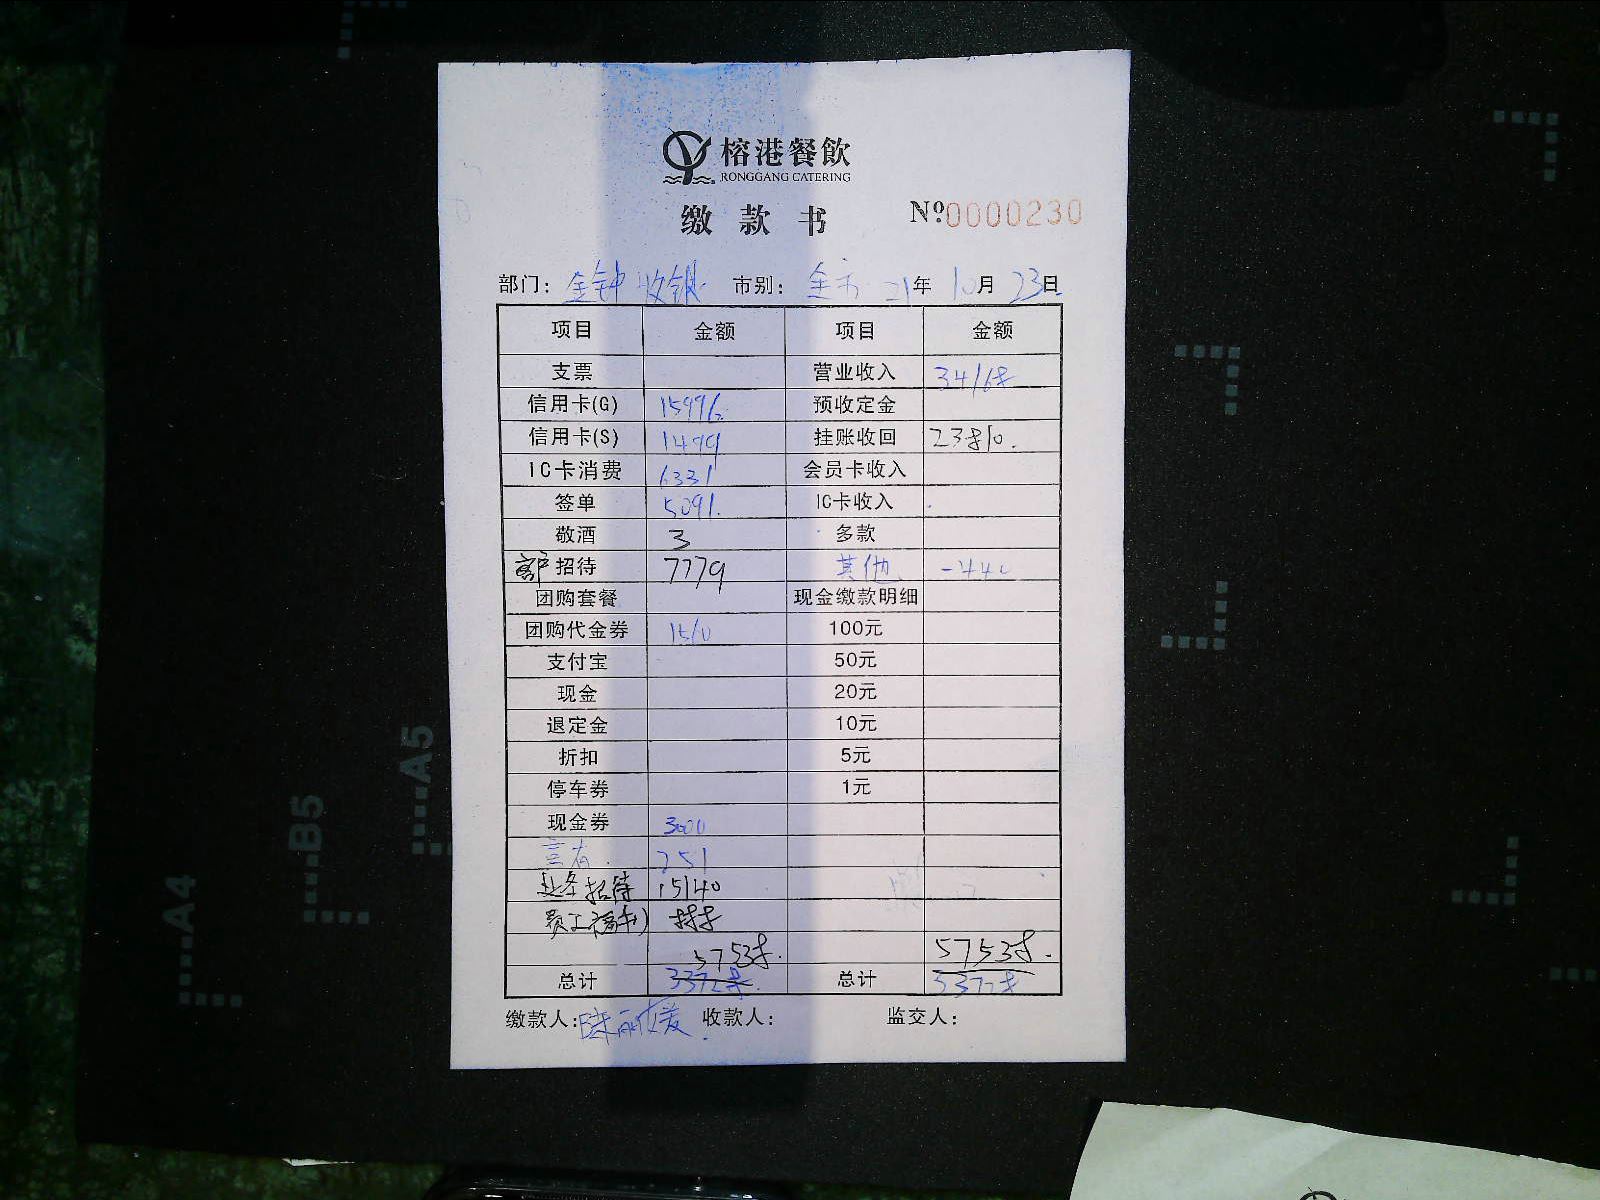 榕港餐飲
RONGGANG CATERING
缴款书 №0000230
部门: 金钟收银 市别: 全市 21年 10月 23日
项目 金额 项目 金额
支票 营业收入 34168
信用卡(G) 15996 预收定金
信用卡(S) 1499 挂账收回 23810.
IC卡消费 6331 会员卡收入
签单 5091. IC卡收入
敬酒 3 多款
客户招待 7779 其他 -440
团购套餐 现金缴款明细
团购代金券 1510 100元
支付宝 50元
现金 20元
退定金 10元
折扣 5元
停车券 1元
现金券 3000
251
业务招待 15140
员工福利 888
57538. 57538.
总计 33728. 总计 33728
缴款人: 收款人: 监交人:
A5
B5
A4